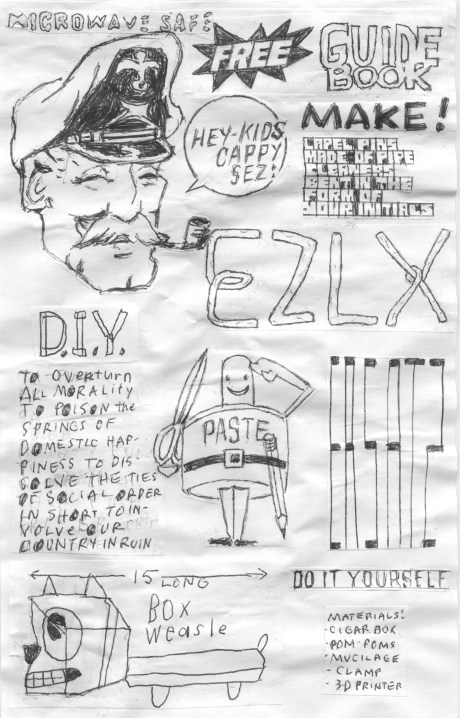 MICROWAVE SAFE
FREE
GUIDE
BOOK
HEY-KIDS
CAPPY
SEZ!
MAKE!
LAPEL PINS
MADE OF PIPE
CLEANERS
BENT IN THE
FORM OF
YOUR INITIALS
EZLX
D.I.Y.
TO OVERTURN
ALL MORALITY
TO POISON the
SPRINGS OF
DOMESTIC HAP-
PINESS TO DIS-
SOLVE THE TIES
OF SOCIAL ORDER
IN SHORT TO IN-
VOLVE OUR
COUNTRY IN RUIN
PASTE
15 LONG
BOX
Weasle
DO IT YOURSELF
MATERIALS!
-CIGAR BOX
-POM-POMS
-MUCILAGE
-CLAMP
-3-D PRINTER